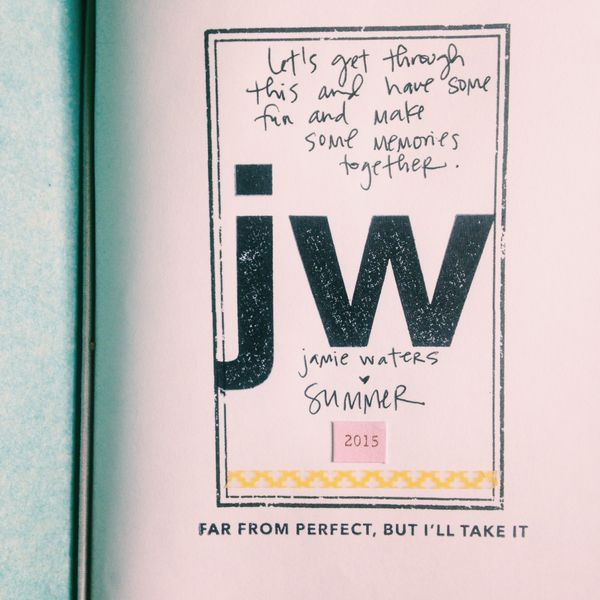 Let's get through
this and have some
fun and make
some memories
together.
jw
jamie waters
SUMMER
2015
FAR FROM PERFECT, BUT I'LL TAKE IT